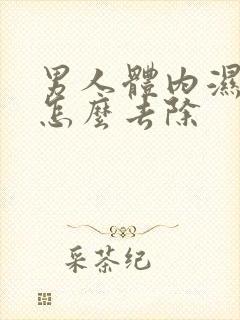 男人體內濕
怎麼去除
采茶纪